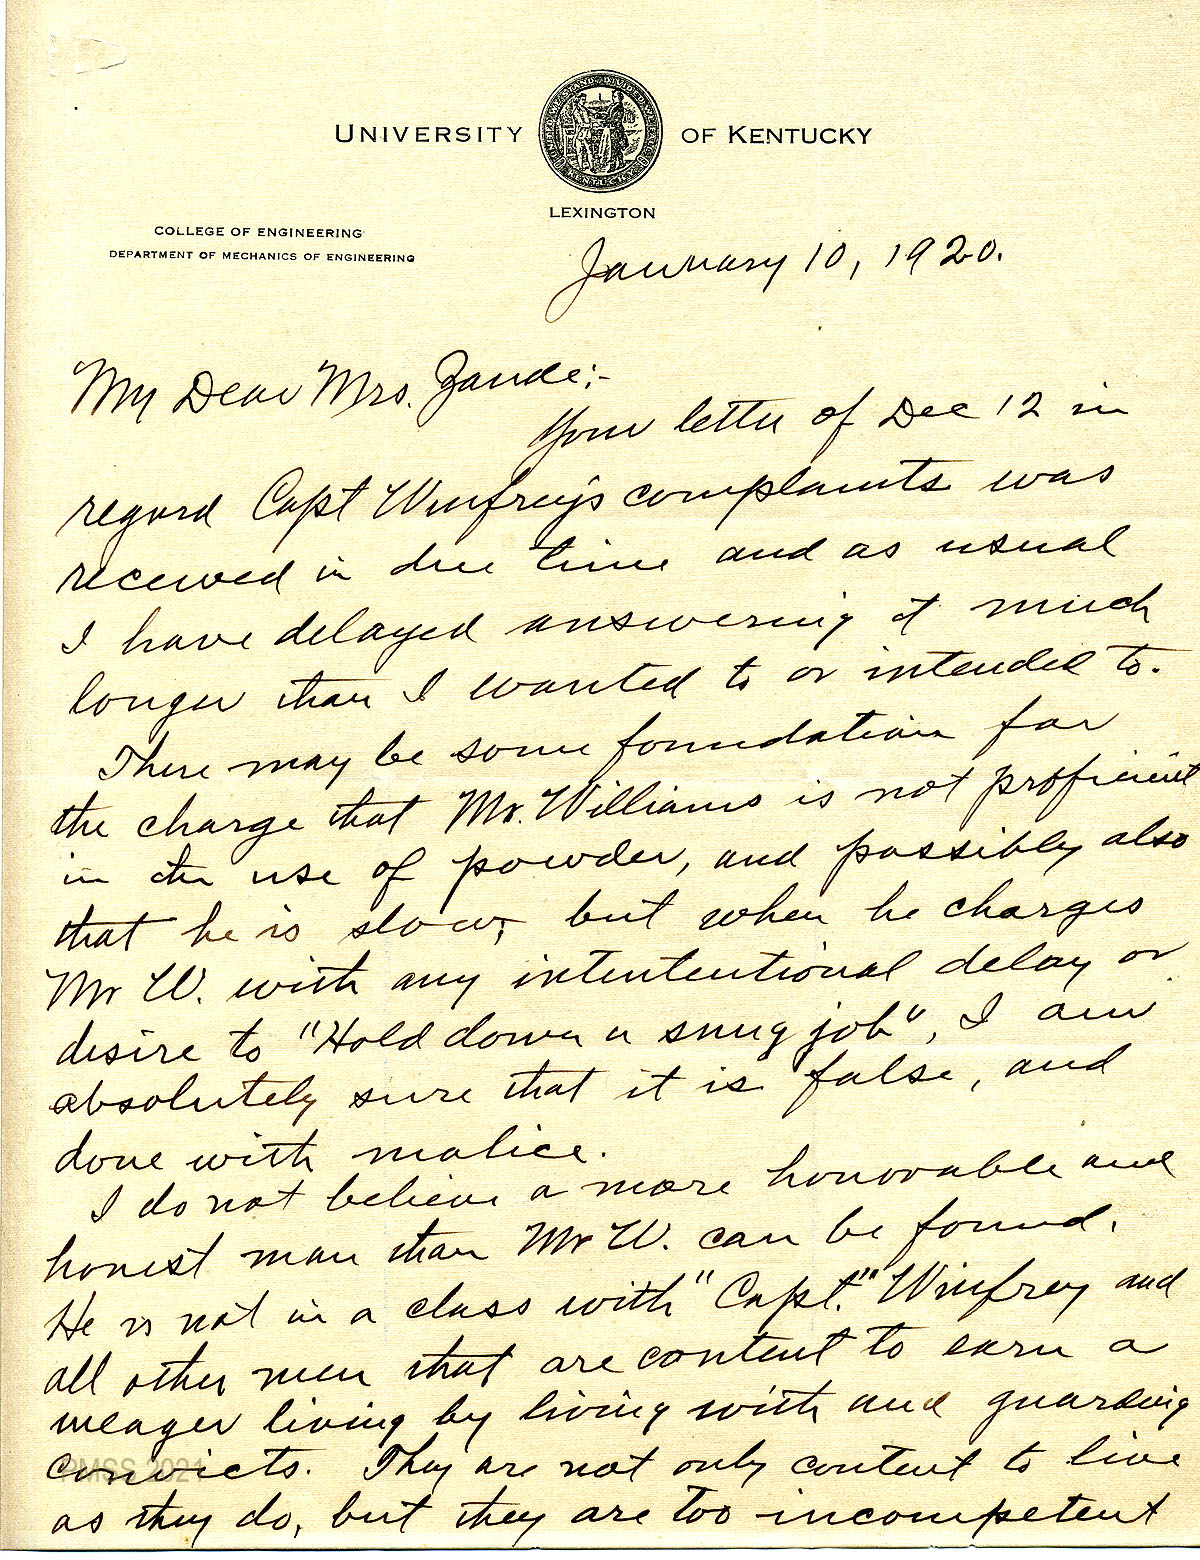 UNIVERSITY OF KENTUCKY
LEXINGTON
COLLEGE OF ENGINEERING
DEPARTMENT OF MECHANICS OF ENGINEERING
January 10, 1920.
My Dear Mrs. Zande:-
Your letter of Dec 12 in
regard Capt Winfrey's complaints was
received in due time and as usual
I have delayed answering it much
longer than I wanted to or intended to.
There may be some foundation for
the charge that Mr. Williams is not proficient
in the use of powder, and possibly also
that he is slow, but when he charges
Mr W. with any intententional delay or
desire to "Hold down a snug job", I am
absolutely sure that it is false, and
done with malice.
I do not believe a more honorable and
honest man than Mr W. can be found.
He is not in a class with "Capt." Winfrey and
all other men that are content to earn a
meager living by living with and guarding
convicts. They are not only content to live
as they do, but they are too incompetent
PMSS 2021